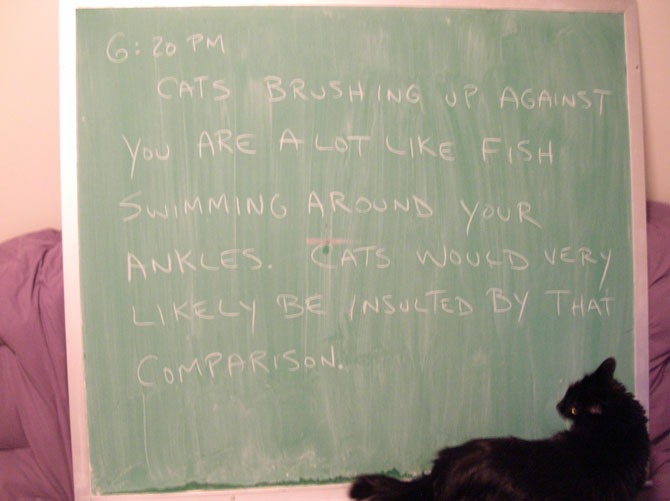 6:20 PM
CATS BRUSHING UP AGAINST
YOU ARE A LOT LIKE FISH
SWIMMING AROUND YOUR
ANKLES. CATS WOULD VERY
LIKELY BE INSULTED BY THAT
COMPARISON.